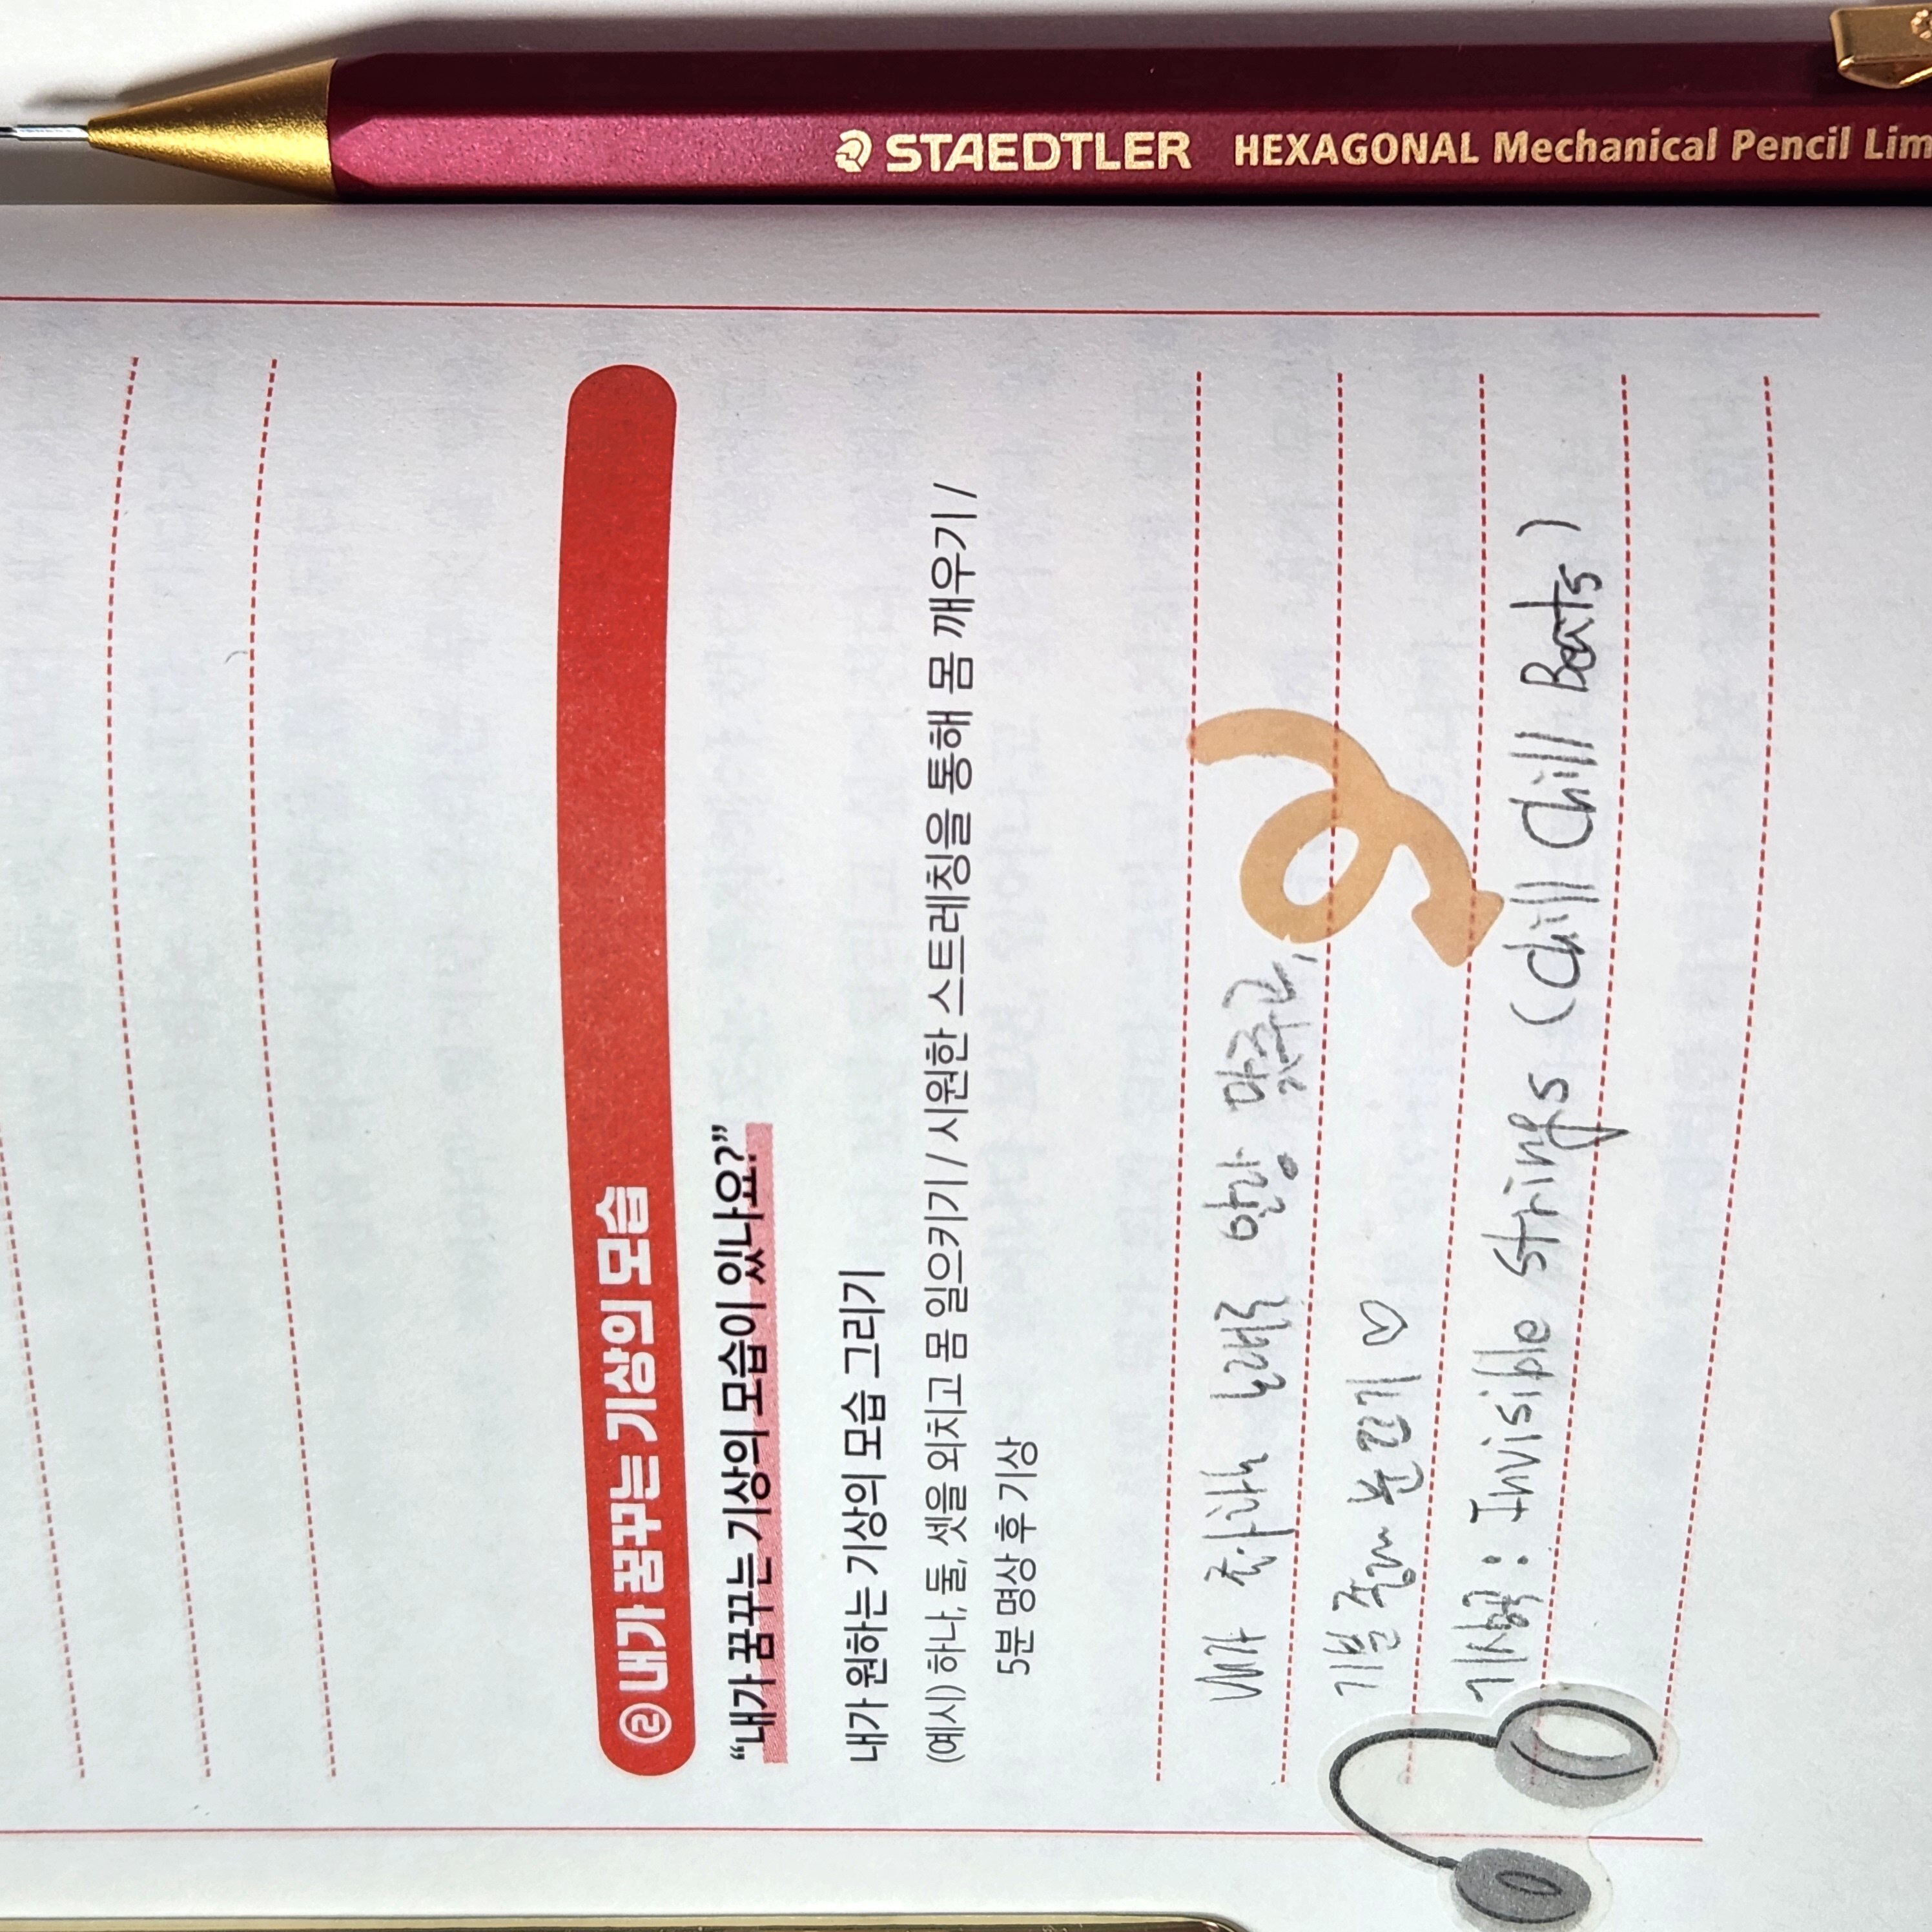 STAEDTLER HEXAGONAL Mechanical Pencil Lim
② 내가 꿈꾸는 기상의 모습
“내가 꿈꾸는 기상의 모습이 있나요?”
내가 원하는 기상의 모습 그리기
(예시) 하나, 둘, 셋을 외치고 몸 일으키기 / 시원한 스트레칭을 통해 몸 깨우기 /
5분 명상 후 기상
내가 좋아하는 노래로 알람 맞추고,
기분 좋게 눈뜨기 ♡
기상송 : Invisible Strings (Chill Chill Beats)